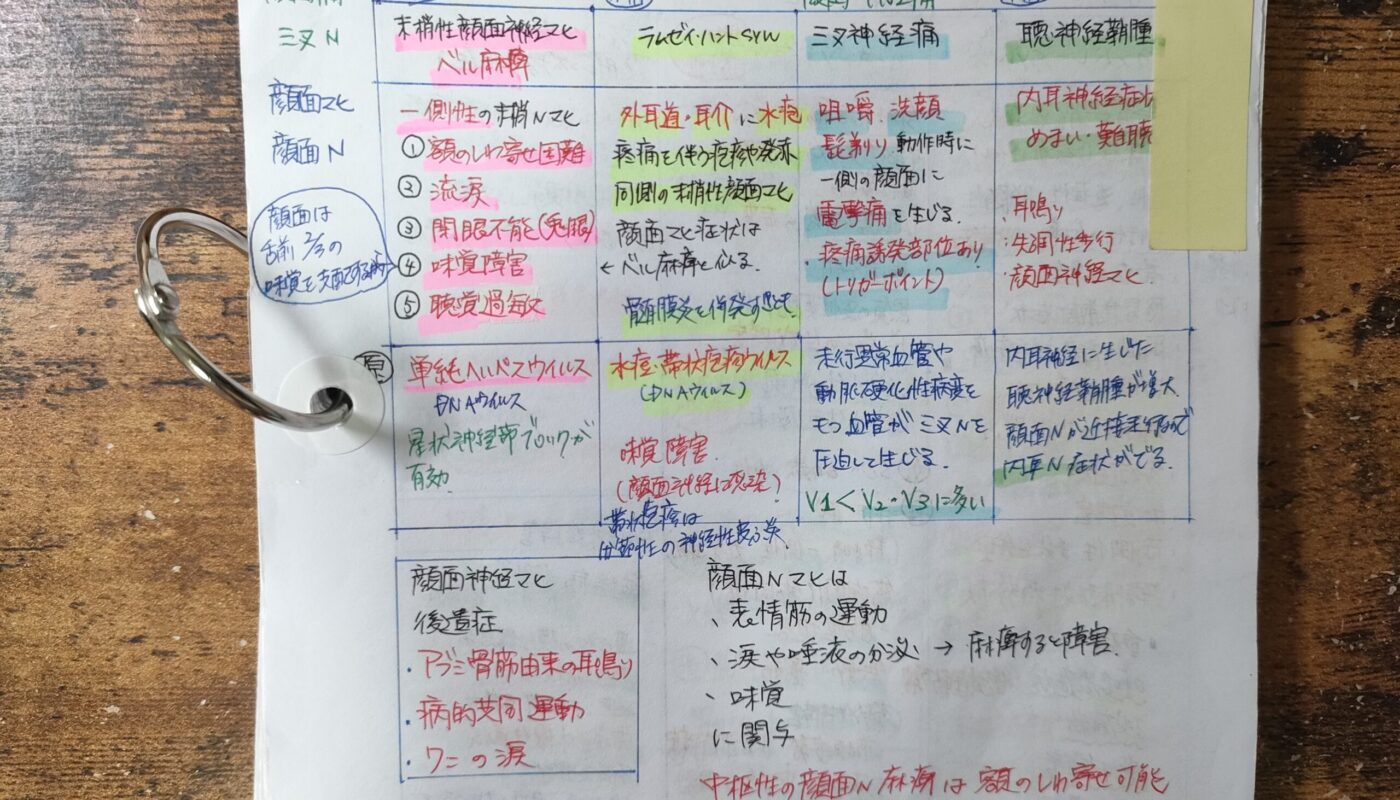 三叉N
顔面マヒ
顔面N
顔面は
舌前2/3の
味覚を支配する為
末梢性顔面神経マヒ
ベル麻痺
ラムゼイ・ハントsyn
三叉神経痛
聴神経鞘腫
一側性の末梢Nマヒ
① 額のしわ寄せ困難
② 流涙
③ 閉眼不能(兎眼)
④ 味覚障害
⑤ 聴覚過敏
外耳道・耳介に水疱
疼痛を伴う疱疹や発赤
同側の末梢性顔面マヒ
顔面マヒ症状は
←ベル麻痺と似る.
髄膜炎を併発す
咀嚼、洗顔
髭剃り動作時に
一側の顔面に
電撃痛を生じる.
・疼痛誘発部位あり
(トリガーポイント)
内耳神経症状
めまい・難聴
・耳鳴り
・失調性歩行
・顔面神経マヒ
原
単純ヘルペスウイルス
DNAウイルス
星状神経節ブロックが
有効.
水痘・帯状疱疹ウイルス
(DNAウイルス)
味覚障害.
(顔面神経に感染)
帯状疱疹は
分節性の神経性
走行異常血管や
動脈硬化性病変を
もつ血管が三叉Nを
圧迫して生じる.
V1<V2・V3に多い
内耳神経に生じた
聴神経鞘腫が増大.
顔面Nが近接走行なので
内耳N症状がでる.
顔面神経マヒ
後遺症
・アブミ骨筋由来の耳鳴り
・病的共同運動
・ワニの涙
顔面Nマヒは
、表情筋の運動
、涙や唾液の分泌 → 麻痺すると障害.
、味覚
に関与
中枢性の顔面N麻痺は額のしわ寄せ可能